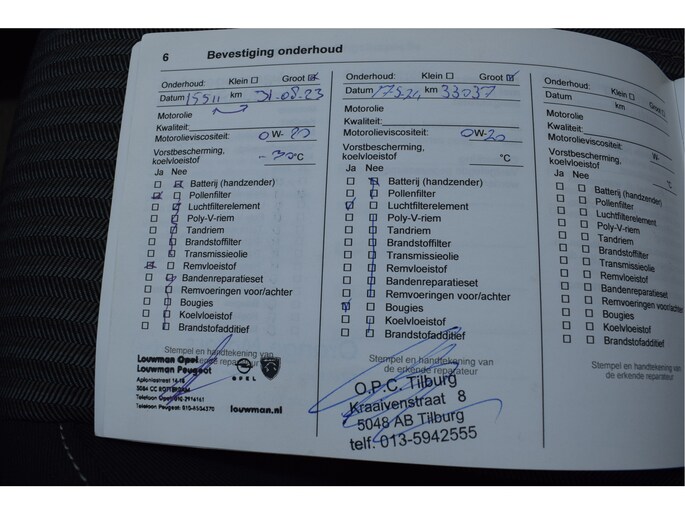 6 Bevestiging onderhoud
Onderhoud: Klein Groot
Datum 15511 km 31-08-23
Motorolie
Kwaliteit:
Motorolieviscositeit: 0 W- 20
Vorstbescherming,
koelvloeistof - 30 °C
Ja Nee
Batterij (handzender)
Pollenfilter
Luchtfilterelement
Poly-V-riem
Tandriem
Brandstoffilter
Transmissieolie
Remvloeistof
Bandenreparatieset
Remvoeringen voor/achter
Bougies
Koelvloeistof
Brandstofadditief
Stempel en handtekening van
de erkende reparateur
Louwman Opel
Louwman Peugeot
OPEL
louwman.nl
Onderhoud: Klein Groot
Datum km 33037
Motorolie
Kwaliteit:
Motorolieviscositeit: 0 W- 20
Vorstbescherming,
koelvloeistof °C
Ja Nee
Batterij (handzender)
Pollenfilter
Luchtfilterelement
Poly-V-riem
Tandriem
Brandstoffilter
Transmissieolie
Remvloeistof
Bandenreparatieset
Remvoeringen voor/achter
Bougies
Koelvloeistof
Brandstofadditief
Stempel en handtekening van
de erkende reparateur
O.P.C. Tilburg
Kraaivenstraat 8
5048 AB Tilburg
telf. 013-5942555
Onderhoud: Klein Groot
Datum km
Motorolie
Kwaliteit:
Motorolieviscositeit: W-
Vorstbescherming,
koelvloeistof °C
Ja Nee
Batterij (handzender)
Pollenfilter
Luchtfilterelement
Poly-V-riem
Tandriem
Brandstoffilter
Transmissieolie
Remvloeistof
Bandenreparatieset
Remvoeringen voor/achter
Bougies
Koelvloeistof
Brandstofadditief
Stempel en handtekening van
de erkende reparateur